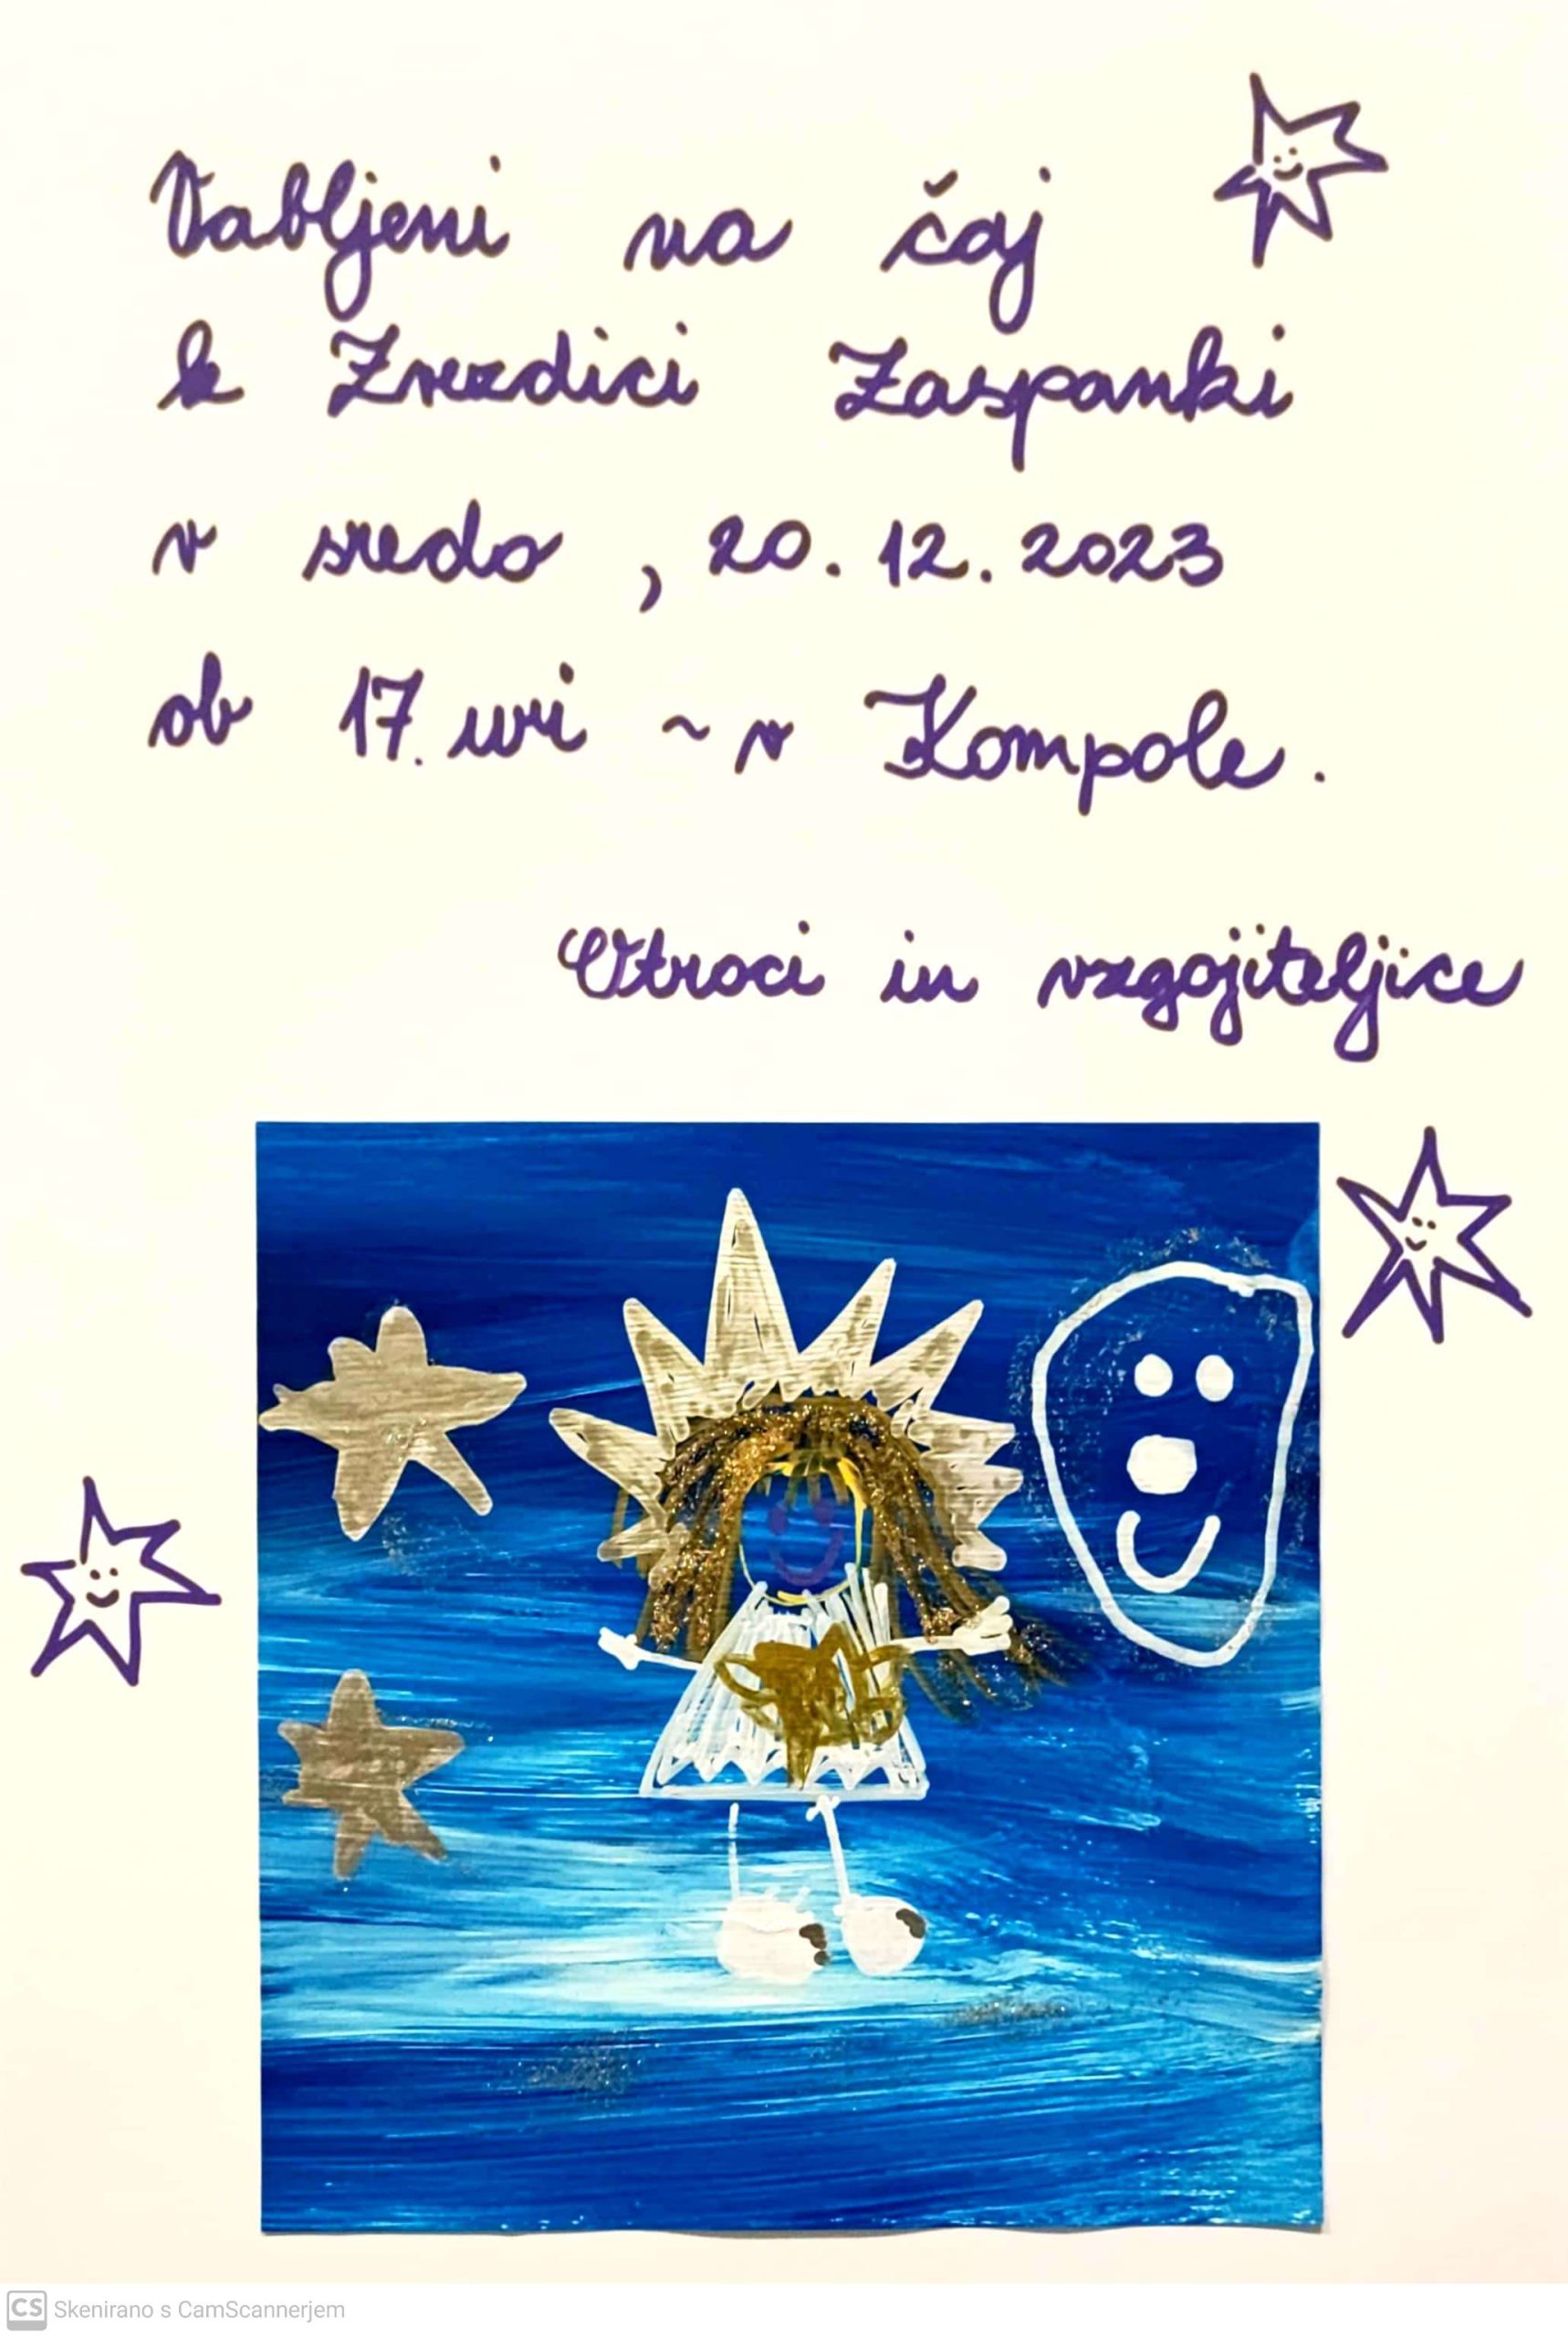 Vabljeni na čaj
k Zvezdici Zaspanki
v sredo, 20. 12. 2023
ob 17. uri ~ v Kompole.
Otroci in vzgojiteljice
CS Skenirano s CamScannerjem